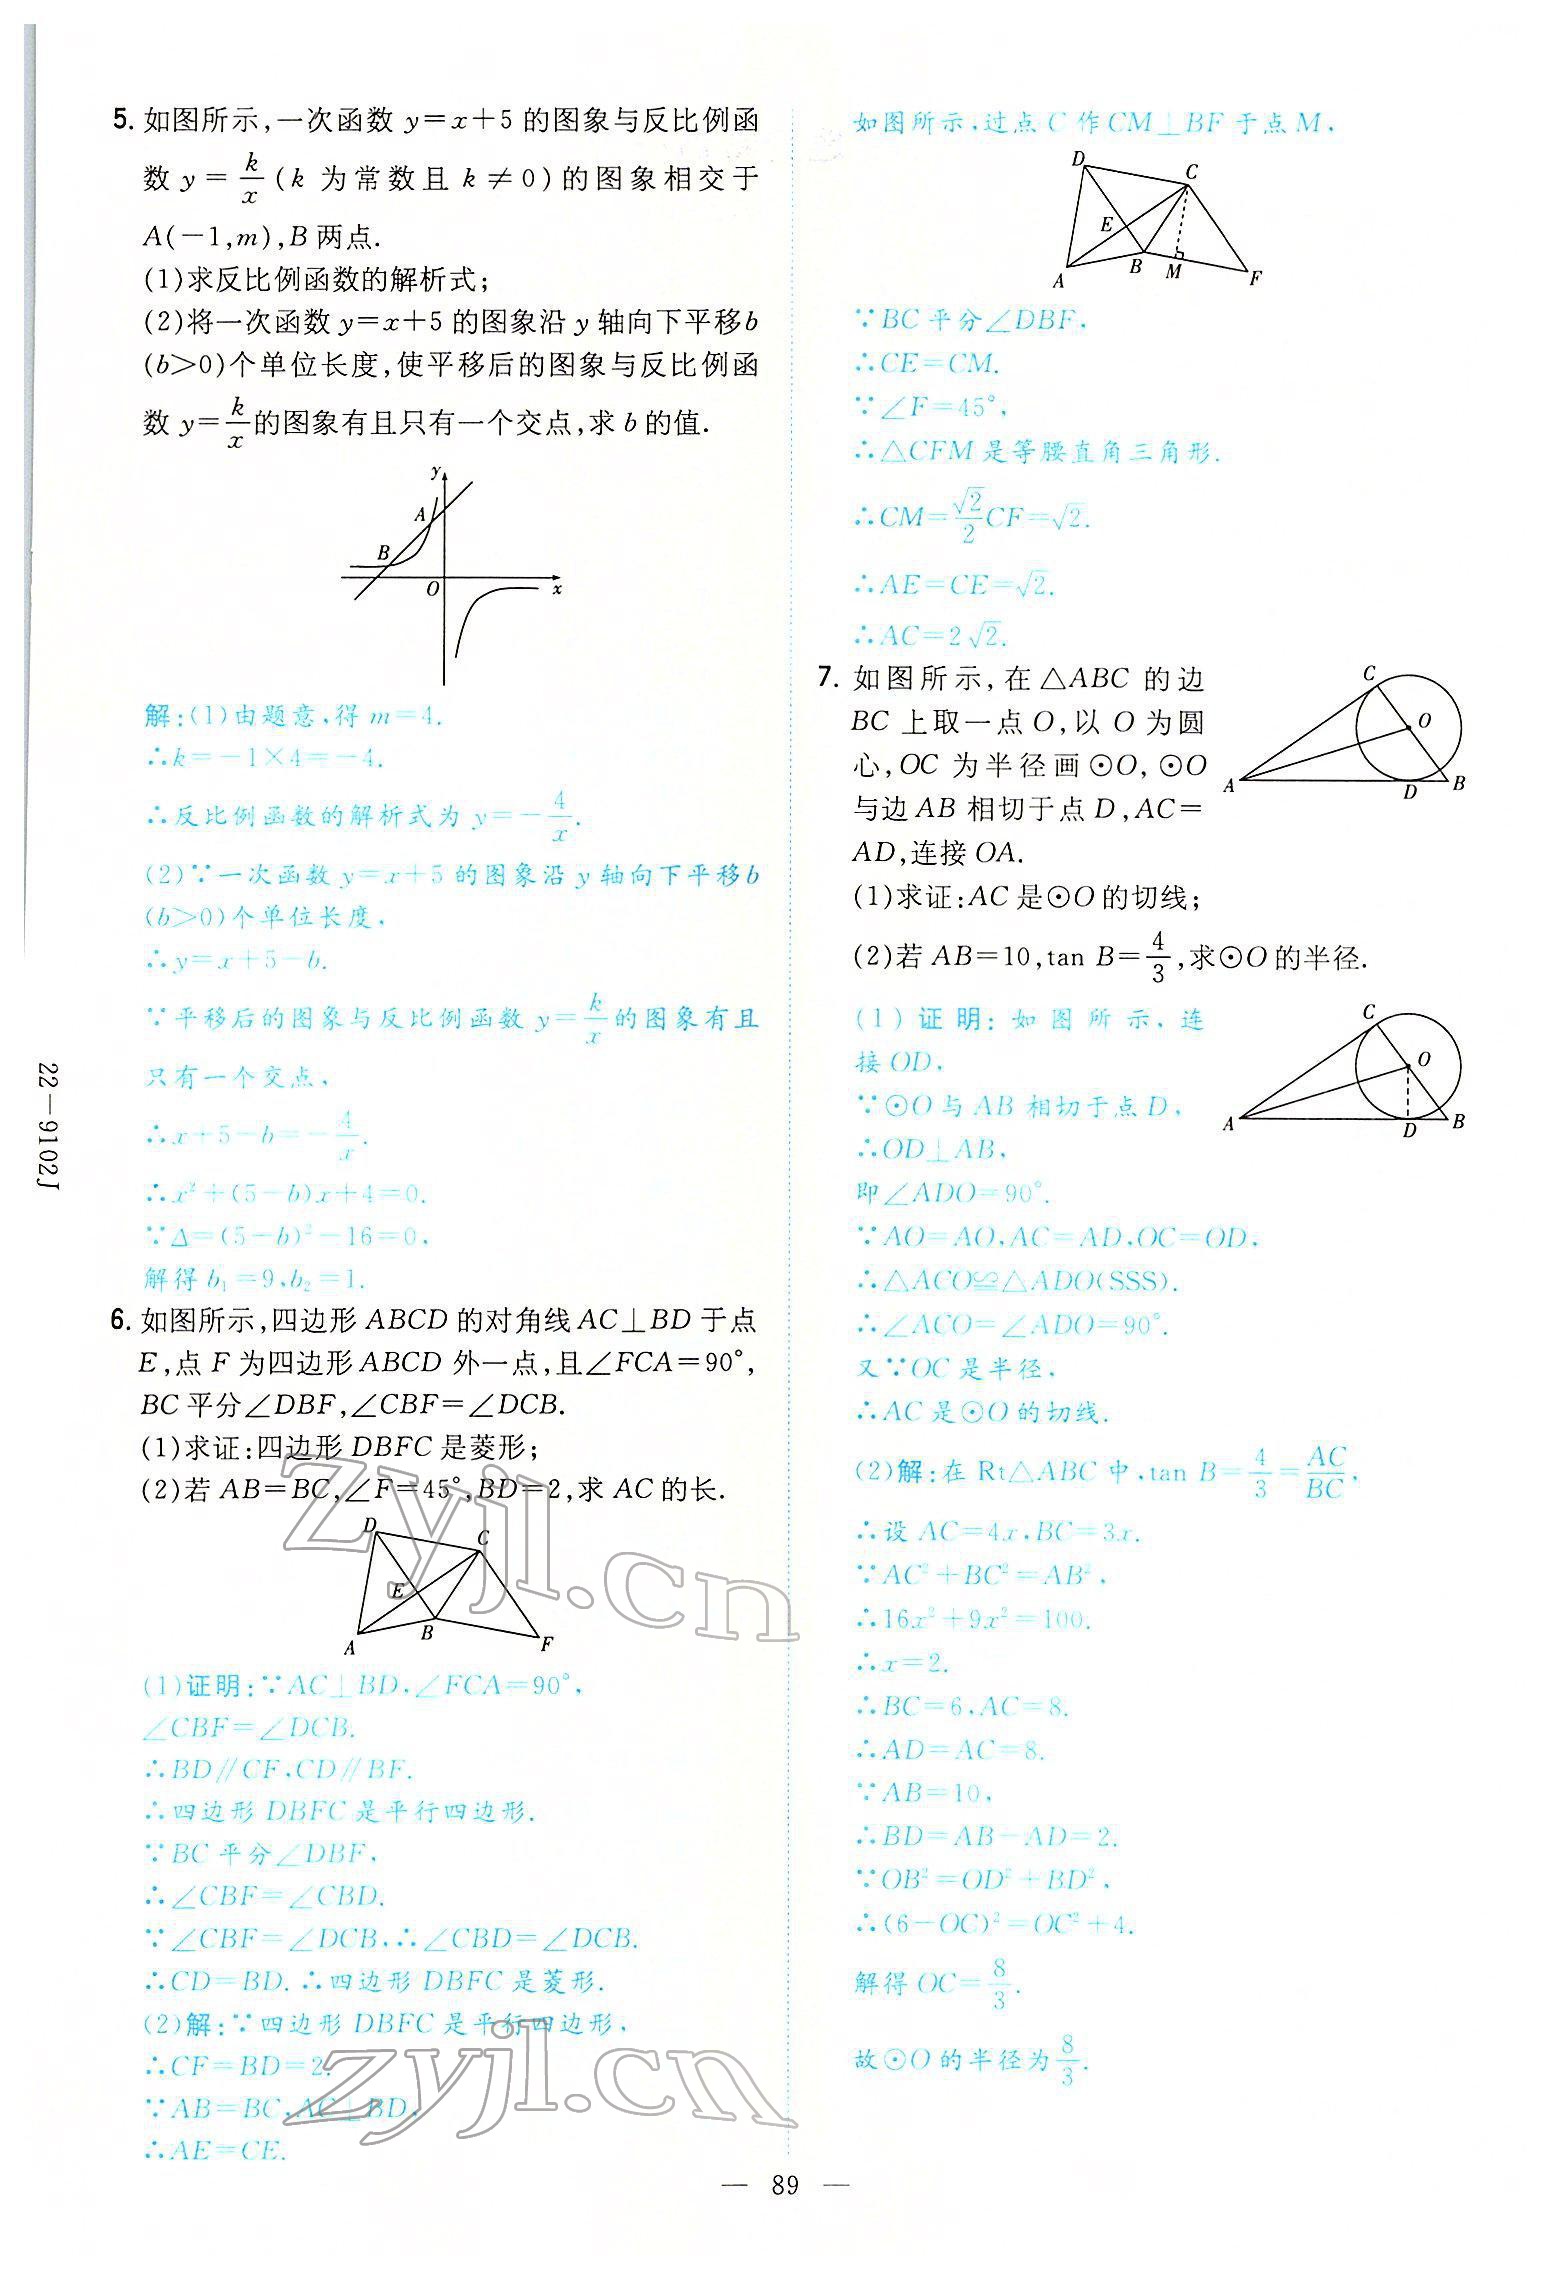 5. 如图所示,一次函数 y=x+5 的图象与反比例函
数 y=k/x (k 为常数且 k≠0)的图象相交于
A(-1,m),B 两点.
(1)求反比例函数的解析式;
(2)将一次函数 y=x+5 的图象沿 y 轴向下平移 b
(b>0)个单位长度,使平移后的图象与反比例函
数 y=k/x的图象有且只有一个交点,求 b 的值.
y
A
B
O
x
解:(1)由题意,得 m=4.
∴k=-1×4=-4.
∴反比例函数的解析式为 y=-4/x.
(2)∵一次函数 y=x+5 的图象沿 y 轴向下平移 b
(b>0)个单位长度,
∴y=x+5-b.
∵平移后的图象与反比例函数 y=k/x的图象有且
只有一个交点,
∴x+5-b=-4/x.
∴x²+(5-b)x+4=0.
∵Δ=(5-b)²-16=0,
解得 b₁=9,b₂=1.
6. 如图所示,四边形 ABCD 的对角线 AC⊥BD 于点
E,点 F 为四边形 ABCD 外一点,且∠FCA=90°,
BC 平分∠DBF,∠CBF=∠DCB.
(1)求证:四边形 DBFC 是菱形;
(2)若 AB=BC,∠F=45°,BD=2,求 AC 的长.
D
C
E
A
B
F
(1)证明:∵AC⊥BD,∠FCA=90°,
∠CBF=∠DCB.
∴BD∥CF,CD∥BF.
∴四边形 DBFC 是平行四边形.
∵BC 平分∠DBF,
∴∠CBF=∠CBD.
∵∠CBF=∠DCB,∴∠CBD=∠DCB.
∴CD=BD.∴四边形 DBFC 是菱形.
(2)解:∵四边形 DBFC 是平行四边形,
∴CF=BD=2.
∵AB=BC,AC⊥BD,
∴AE=CE.
如图所示,过点 C 作 CM⊥BF 于点 M,
D
C
E
A
B
M
F
∵BC 平分∠DBF,
∴CE=CM.
∵∠F=45°,
∴△CFM 是等腰直角三角形.
∴CM=√2/2CF=√2.
∴AE=CE=√2.
∴AC=2√2.
7. 如图所示,在△ABC 的边
BC 上取一点 O,以 O 为圆
心,OC 为半径画⊙O,⊙O
与边 AB 相切于点 D,AC=
AD,连接 OA.
(1)求证:AC 是⊙O 的切线;
(2)若 AB=10,tan B=4/3,求⊙O 的半径.
C
O
A
D
B
(1)证明:如图所示,连
接 OD,
∵⊙O 与 AB 相切于点 D,
∴OD⊥AB,
即∠ADO=90°.
∵AO=AO,AC=AD,OC=OD,
∴△ACO≌△ADO(SSS).
∴∠ACO=∠ADO=90°.
又∵OC 是半径,
∴AC 是⊙O 的切线.
C
O
A
D
B
(2)解:在 Rt△ABC 中,tan B=4/3=AC/BC,
∴设 AC=4x,BC=3x.
∵AC²+BC²=AB²,
∴16x²+9x²=100.
∴x=2.
∴BC=6,AC=8.
∴AD=AC=8.
∵AB=10,
∴BD=AB-AD=2.
∵OB²=OD²+BD²,
∴(6-OC)²=OC²+4.
解得 OC=8/3.
故⊙O 的半径为8/3.
22—9102J
zyjl.cn
zyjl.cn
— 89 —